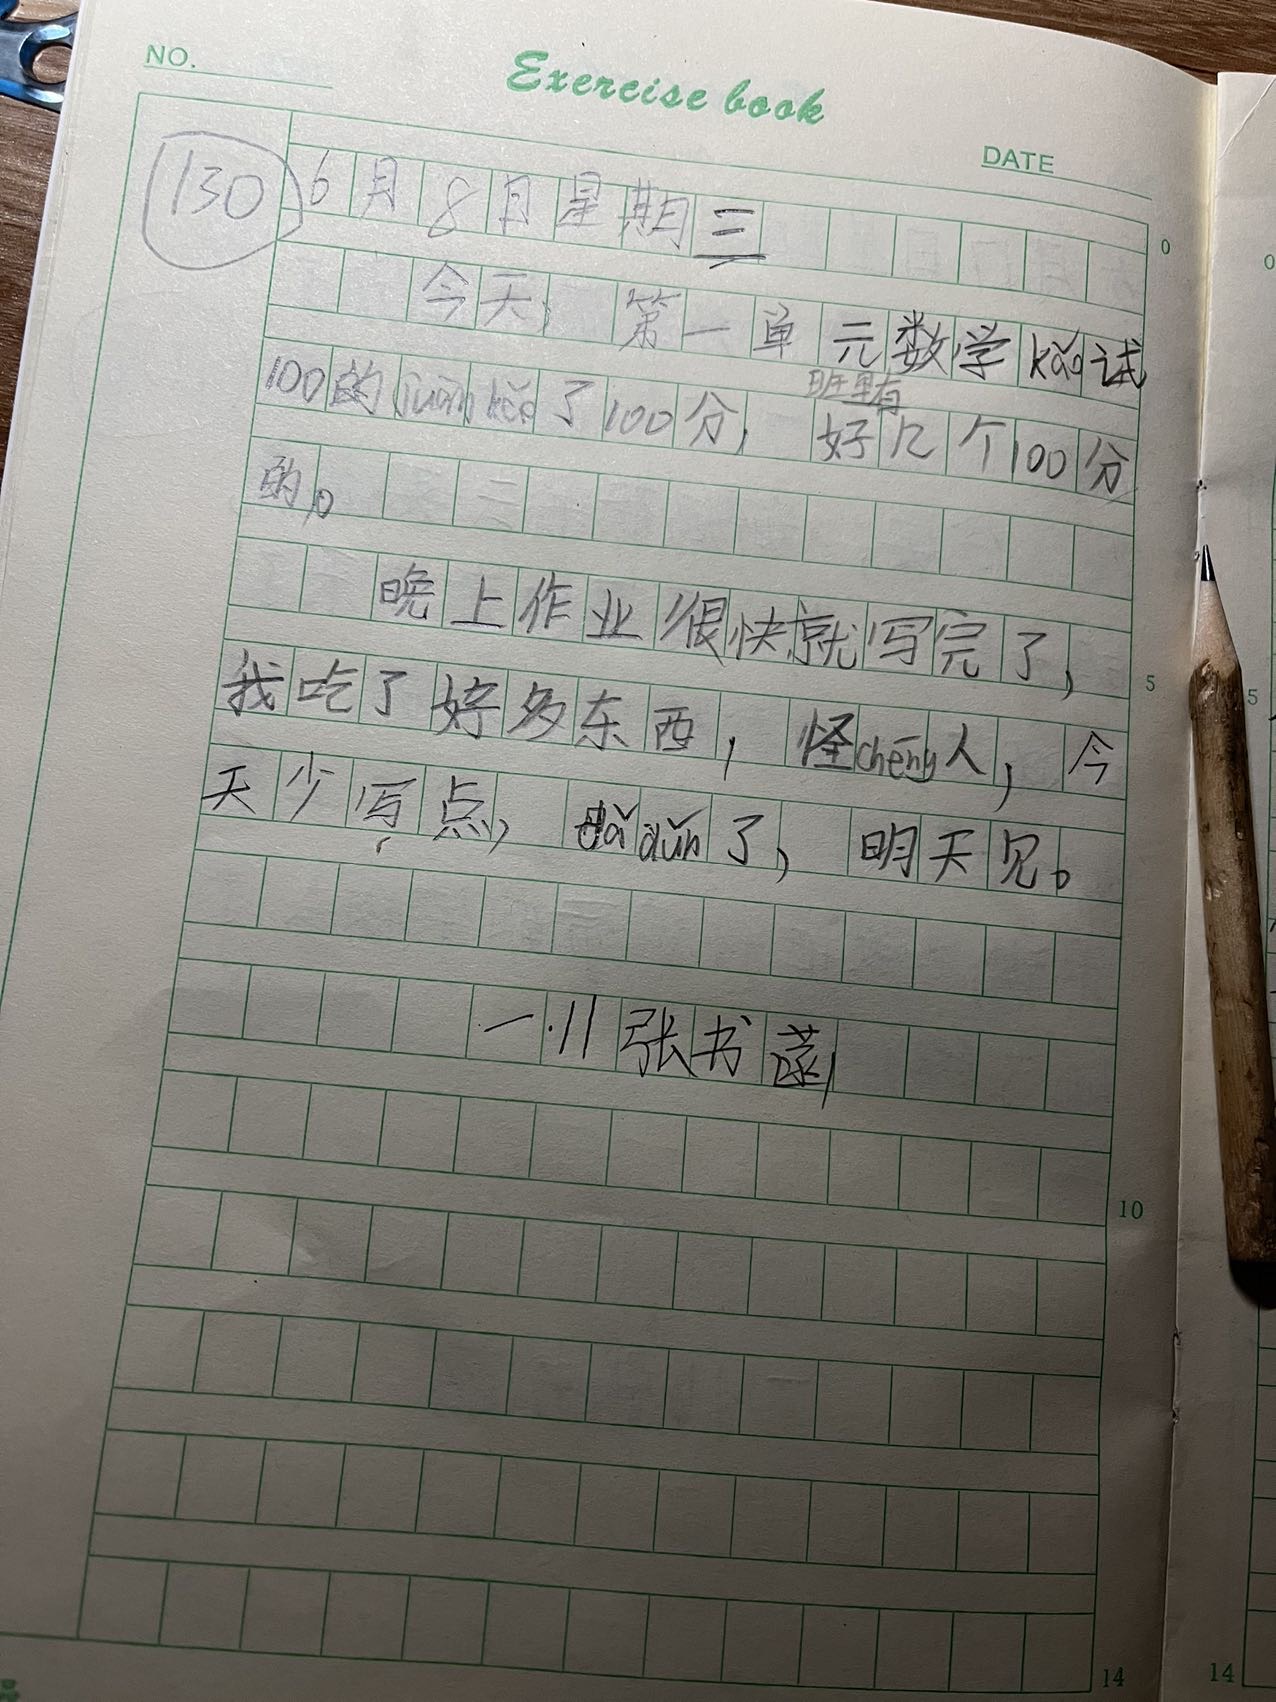 NO.
Exercise book
DATE
130
6月8日星期三
今天，第一单元数学kǎo试
100的juànkǎo了100分，班里有好几个100分
的。
晚上作业很快就写完了，
我吃了好多东西，怪chēng人，今
天少写点，dǎdǔn了，明天见。
一.11张书菡
0
5
10
14
0
5
14